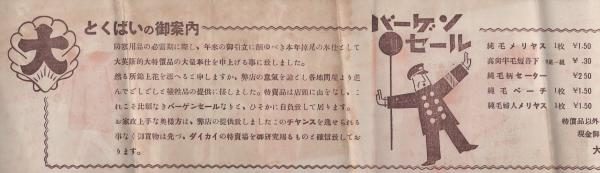 大
とくばいの御案内
防寒用品の必需期に際し、年来の御引立に酬ゆべき本年掉尾の奉仕として
大英断的大特價品の大量奉仕を申上げる事に致しました。
然も所謂上花を逐へると申しますか、弊店の意氣を諒とし各地問屋より進
んでどしどしと犠牲品の提供に接しました。特賣品は店頭に山をなし、こ
れこそ比類なきバーゲンセールならむと、ひそかに自負致して居ります。
お家政上手な奥樣方は、弊店の提供致しましたこのチヤンスを逸せられる
事なく御買物は先づ、ダイカイの特賣場を御研究賜るものと確信致してお
ります。
バーゲン
セール
純毛メリヤス 1枚 ¥1.50
高尚牛毛短首下 ¥.30
純毛柄セーター ¥2.50
純毛ベーチ 1枚 ¥1.50
純毛婦人メリヤス 1枚 ¥1.50
特價品以外
現金御
大